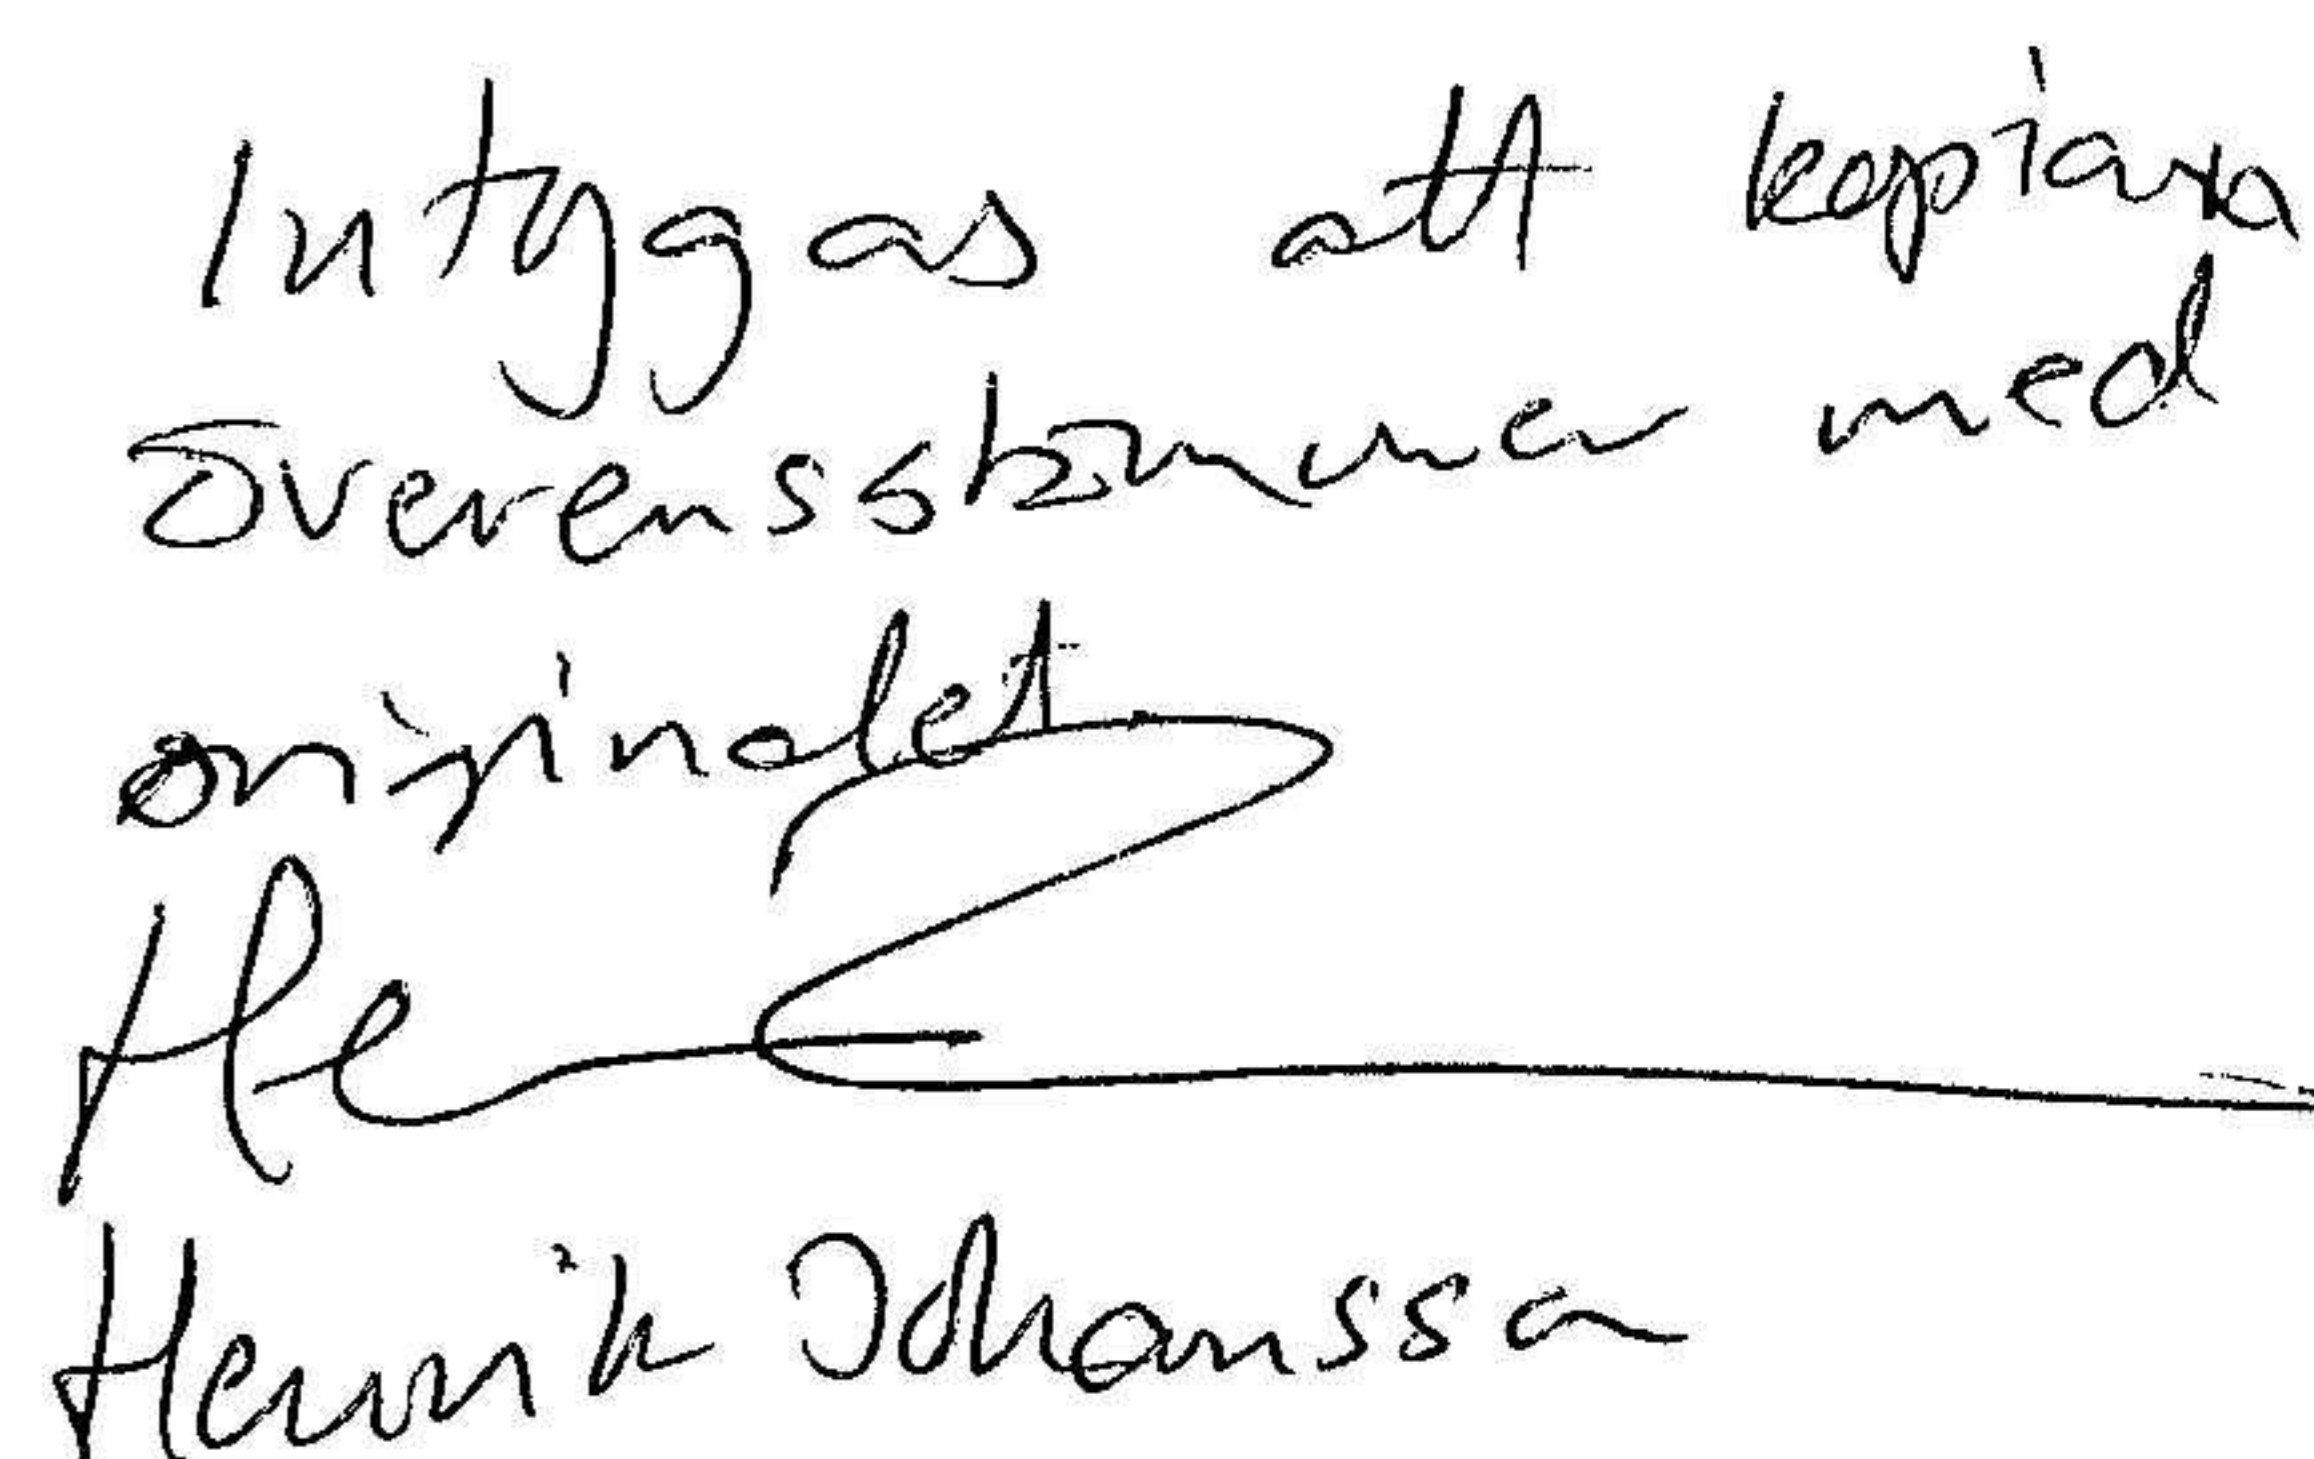 Intygas att kopiorna
överensstämmer med
originalet
Henrik Johansson